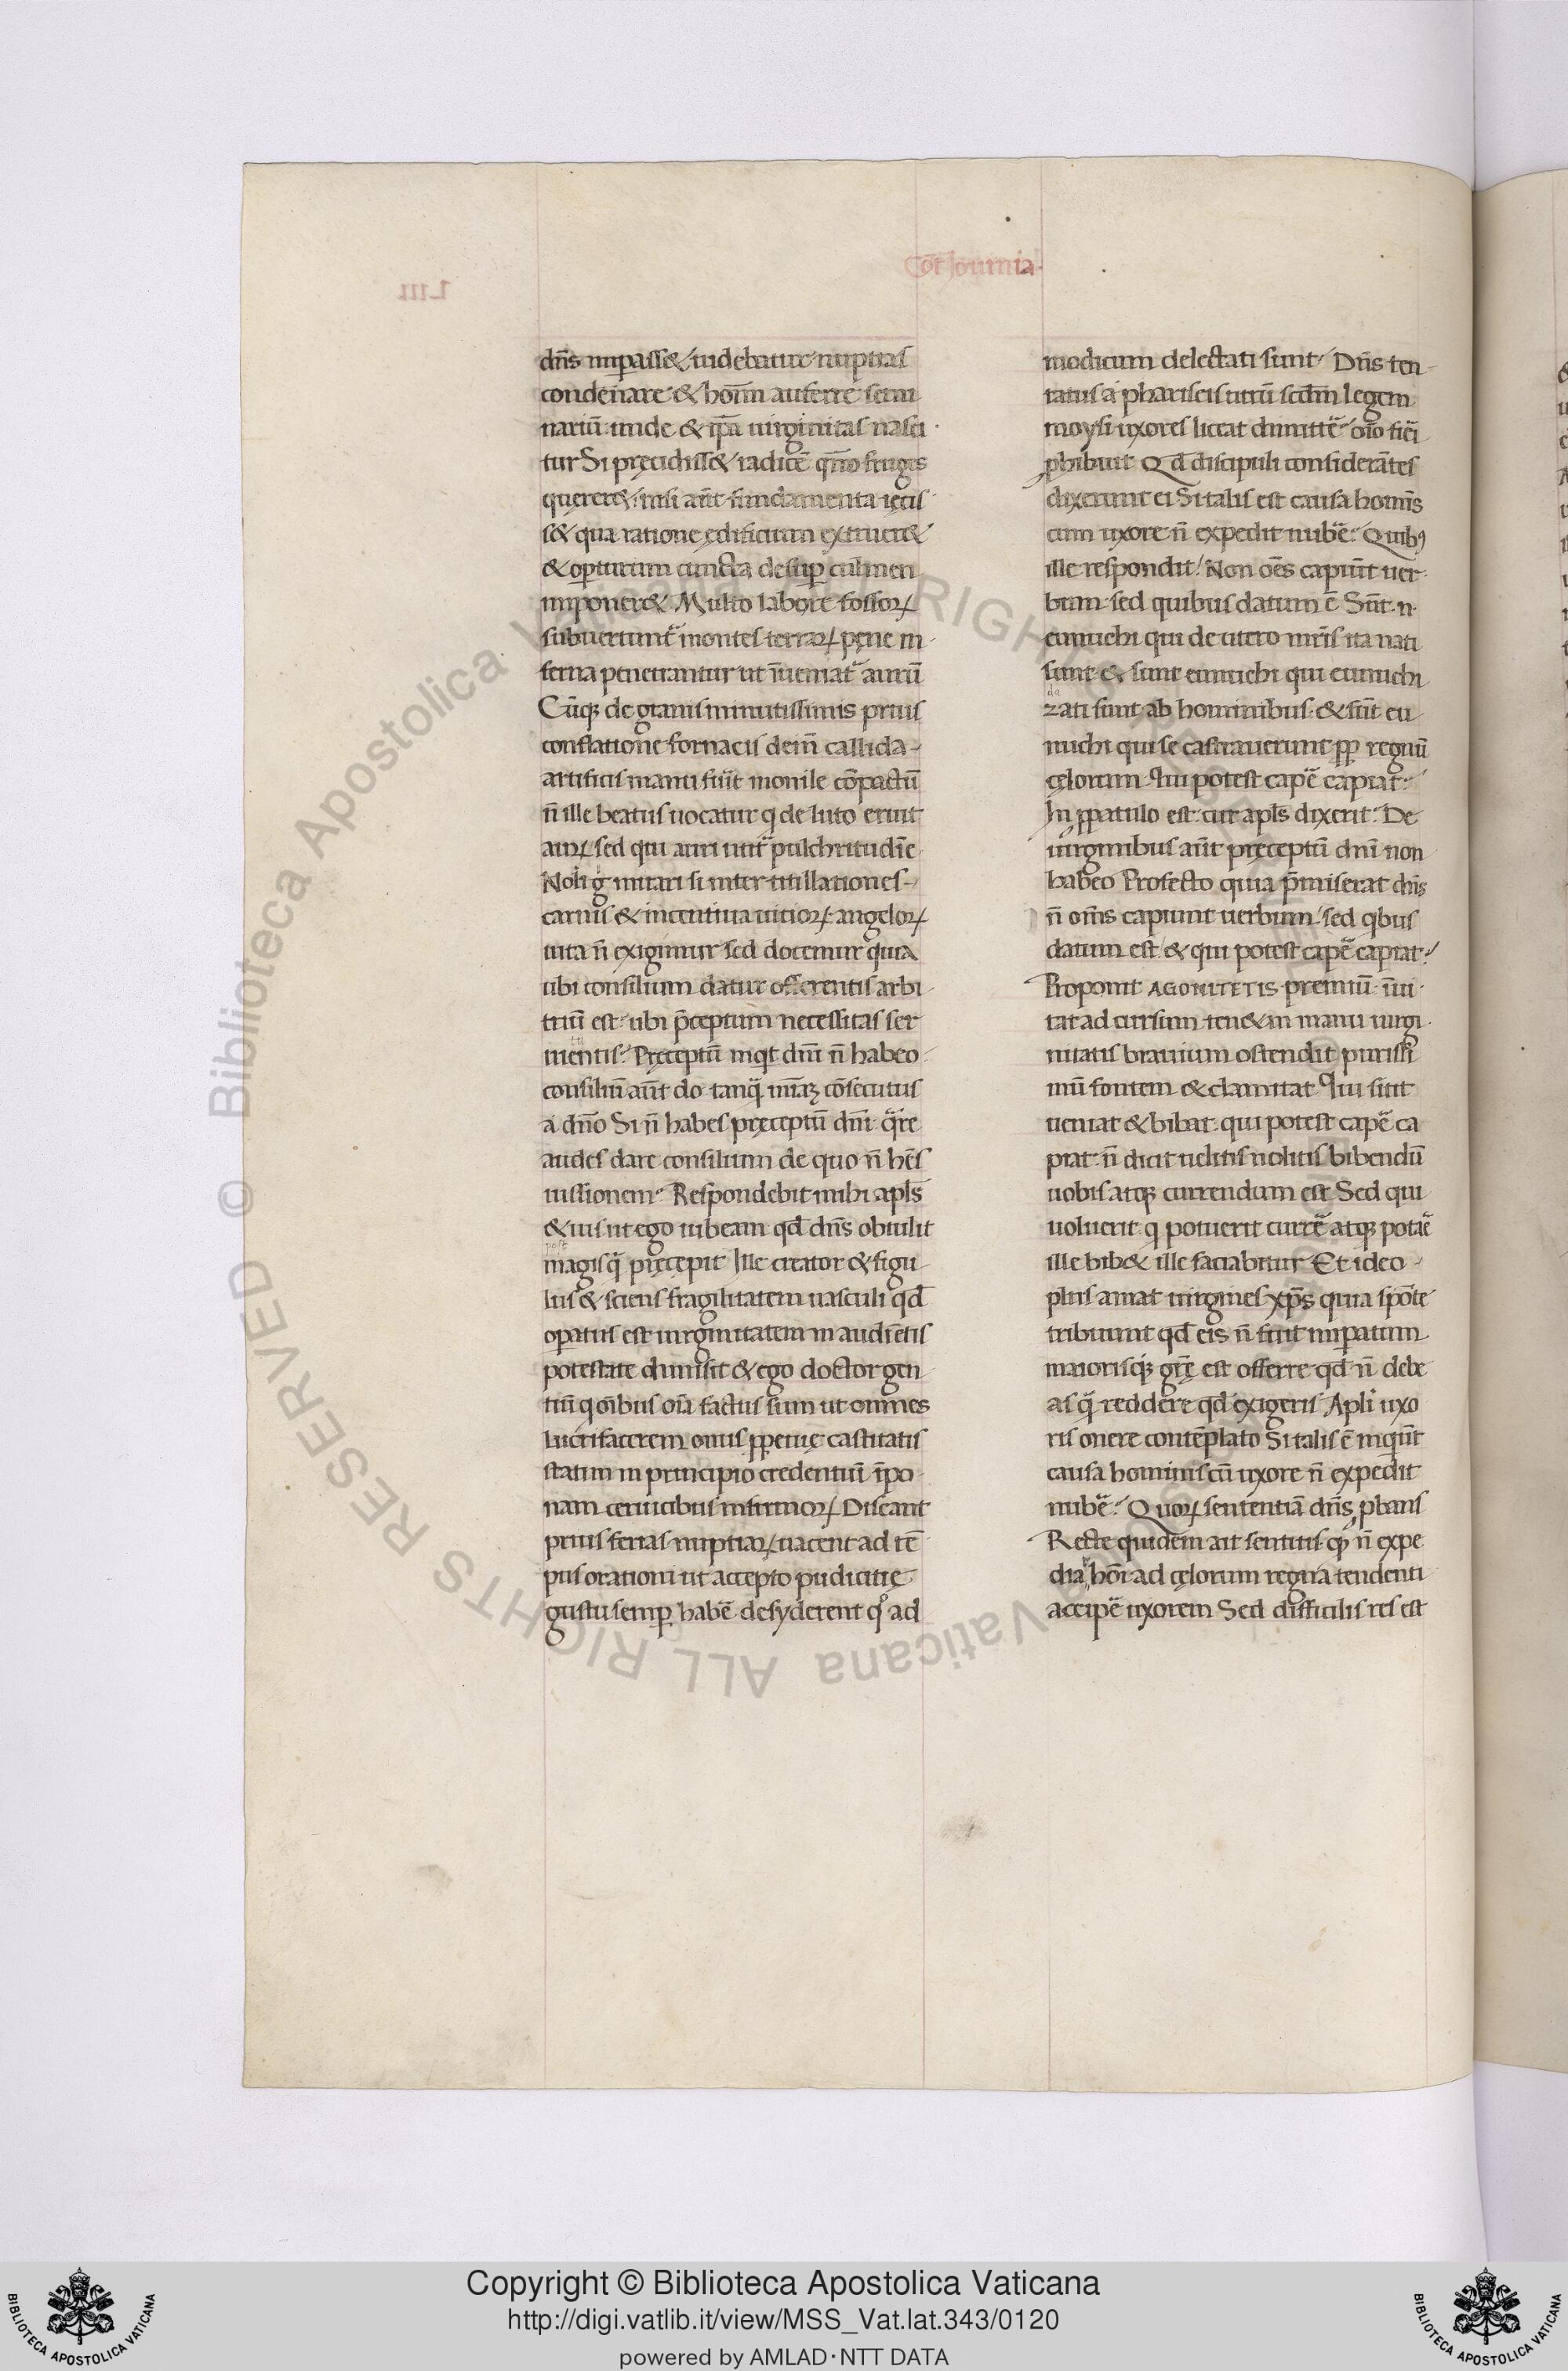 Cōt Iouinia.
LIII
dn̄s imꝑass& uidebatur nuptias
condēnare & hoīm auferre semi
nariū unde & ip̄a uirginitas nasci
tur Si pręcidiss& radicē quō fruges
quęrer& nisi aūt fundamenta iecis
s& qua ratione ędificium extruer&
& oꝑturum cuncta desuꝑ culmen
imponer& Multo labore fossoꝝ
subuertunt᷑ montes terraꝝ pęne in
ferna penetrantur ut īueniat᷑ aurū
Cūqꝫ de granis minutissimis prius
conflatione fornacis dein̄ callida
artificis manu fiūt monile cōpactū
n̄ ille beatus uocatur q de luto eruit
auꝝ sed qui auri utit᷑ pulchritudīe
Noli g mirari si inter titillationes
carnis & incentiua uitioꝝ angeloꝝ
uita n̄ exigimur sed docemur quia
ubi consilium datur offerentis arbi
triū est ubi p̄ceptum necessitas ser
uientis Pręceptū inqt dn̄i n̄ habeo
consiliū aūt do tanq̄ miāꝫ cōsecutus
a dn̄o Si n̄ habes pręceptū dn̄i q̄re
audes dare consilium de quo n̄ hēs
iussionem Respondebit mihi apl̄s
& uis ut ego iubeam qd̄ dn̄s obtulit
magis q̄ pręcepit Ille creator & figu
lus & sciens fragilitatem uasculi qd̄
oꝑatus est uirginitatem in audiētis
potestate dimisit & ego doctor gen
tiū q oībus oīa factus sum ut omnes
lucrifacerem onus ꝑpetuę castitatis
statim in principio credentiū īpo
nam ceruicibus infirmoꝝ Discant
prius ferias nuptiaꝝ uacent ad tē
pus orationi ut accepto pudicitię
gustu semꝑ habē desyderent qͦ ad
modicum delectati sunt Dn̄s ten
tatus a phariseis utrū scd̄m legem
moysi uxores liceat dimittē oīo fieri
ꝓhibuit Qd̄ discipuli considerātes
dixerunt ei Si talis est causa homīs
cum uxore n̄ expedit nubē Quibꝰ
ille respondit Non oēs capiūt uer
bum sed quibus datum ē Sūt n
eunuchi qui de utero mr̄is ita nati
sunt & sunt eunuchi qui eunuchi
zati sunt ab hominibus & sūt eu
nuchi qui se castrauerunt ꝓp regnū
cęlorum Qui potest capē capiat
In ꝓpatulo est cur apl̄s dixerit De
uirginibus aūt pręceptū dn̄i non
habeo Profecto quia p̄miserat dn̄s
n̄ om̄s capiunt uerbum sed qbus
datum est & qui potest capē capiat
Proponit AGONITETIS premiū īui
tat ad cursum ten& in manu uirgi
nitatis brauium ostendit purissi
mū fontem & clamitat Qui sitit
ueniat & bibat qui potest capē ca
piat n̄ dicit uelitis nolitis bibendū
uobis atqꝫ currendum est Sed qui
uoluerit q potuerit currē atqꝫ potāē
ille bib& ille saciabitur Et ideo
plus amat uirgines xp̄s quia spōte
tribuunt qd̄ eis n̄ fuit imꝑatum
maiorisqꝫ gr̄ę est offerre qd̄ n̄ debe
as q̄ reddere qd̄ exigeris Apl̄i uxo
ris onere contēplato Si talis ē inquūt
causa hominis cū uxore n̄ expedit
nubē Quoꝝ sententiā dn̄s ꝓbans
Recte quidem ait sentitis qꝫ n̄ expe
diat hoī ad cęlorum regna tendenti
accipē uxorem Sed difficilis res est
© Biblioteca Apostolica Vaticana ALL RIGHTS RESERVED
Copyright © Biblioteca Apostolica Vaticana
http://digi.vatlib.it/view/MSS_Vat.lat.343/0120
powered by AMLAD·NTT DATA
BIBLIOTECA APOSTOLICA VATICANA
BIBLIOTECA APOSTOLICA VATICANA